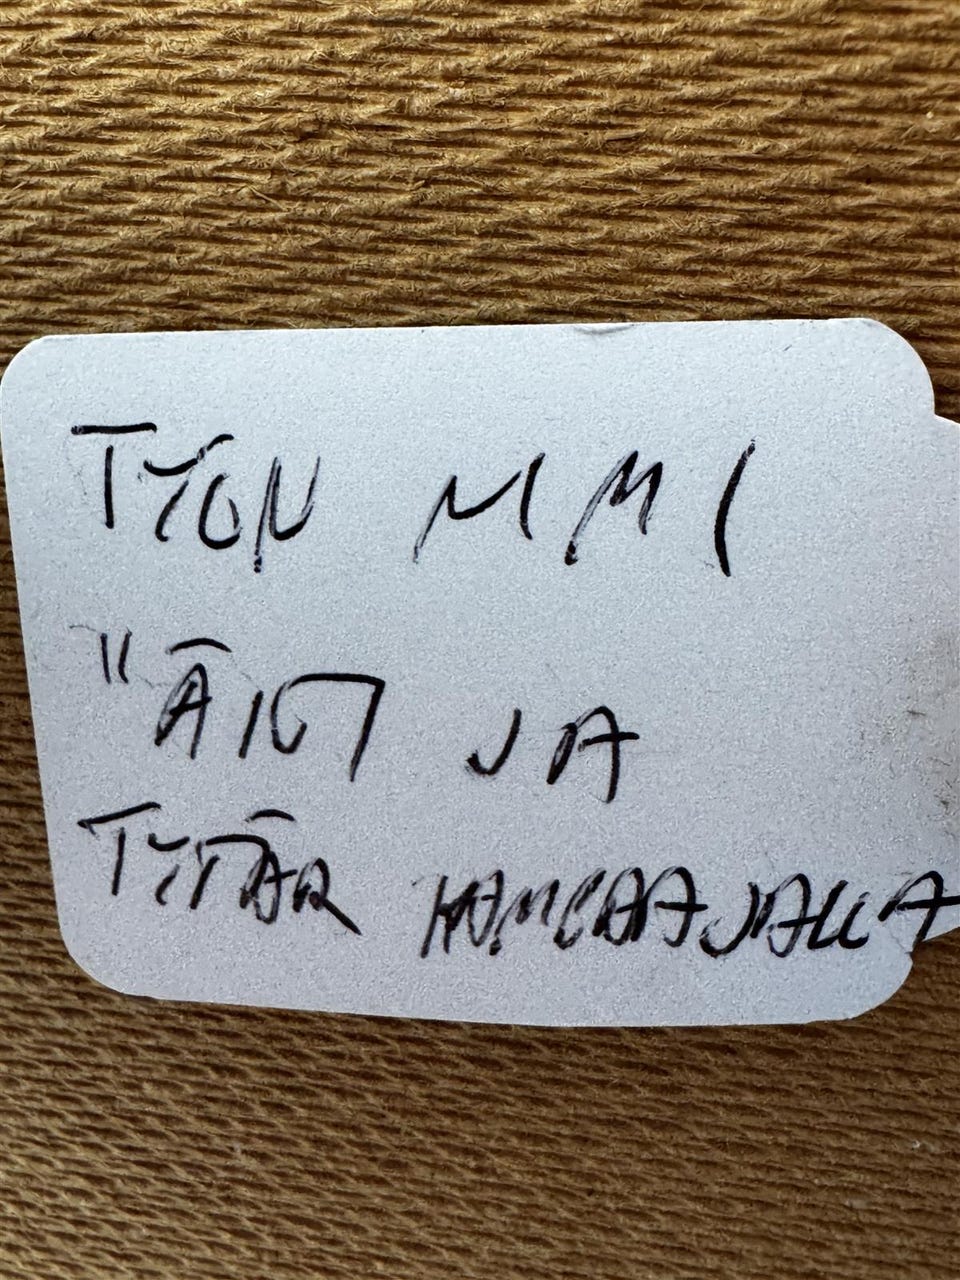 TYÖN NIMI
"ÄITI JA
TYTÄR HAMEAAJALLA